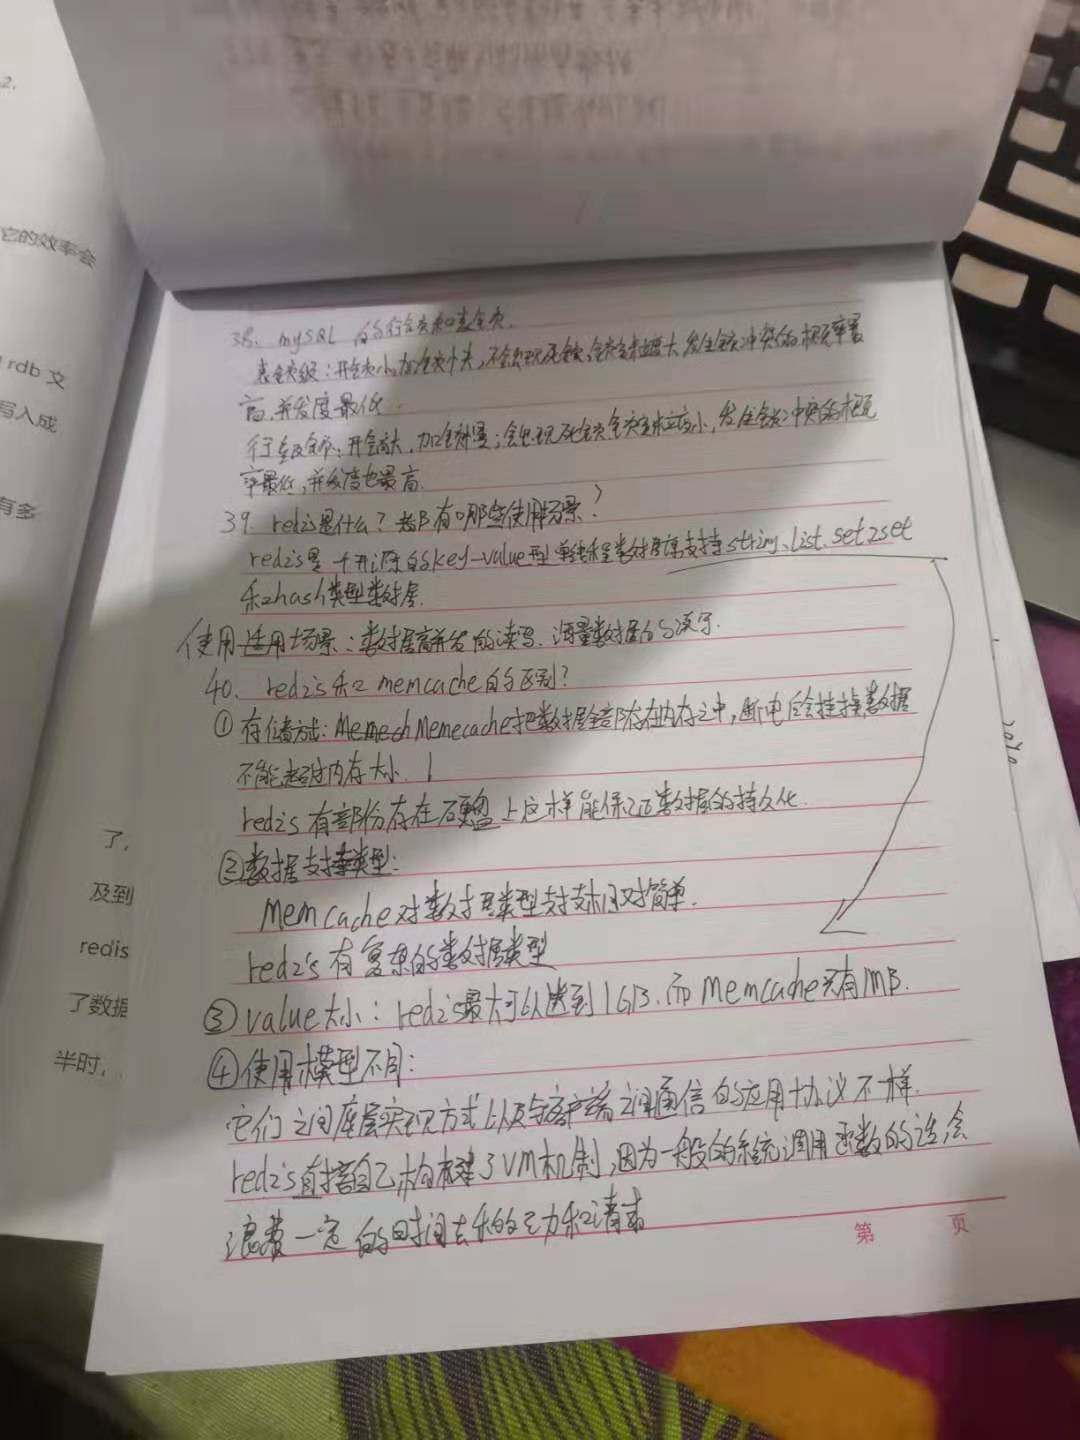 38、mySQL 的行锁和表锁.
表锁级:开销小,加锁快,不会出现死锁,锁定粒度大,发生锁冲突的概率最
高,并发度最低.
行级锁:开销大,加锁慢;会出现死锁,锁定粒度小,发生锁冲突的概
率最低,并发度也最高.
39. redis是什么?都有哪些使用场景?
redis是一个开源的key-value型单线程数据库支持string、list、set zset
和hash类型数据.
使用适用场景:数据高并发的读写、海量数据的读写.
40、redis和memcache的区别?
①存储方式:Memech Memecache把数据全部存在内存之中,断电后会挂掉数据
不能超过内存大小.
redis有部份存在硬盘上这样能保证数据的持久化.
②数据支持类型:
Memcache对数据类型支持相对简单.
redis有复杂的数据类型
③value大小:redis最大可以达到1GB,而Memcache只有MB.
④使用模型不同:
它们之间底层实现方式以及与客户端之间通信的应用协议不一样.
redis直接自己构建了VM机制,因为一般的系统调用函数的话,会
浪费一定的时间去移动和请求
第 页
它的效率会
rdb 文
写入成
有多
了,
及到
redis
了数据
半时,